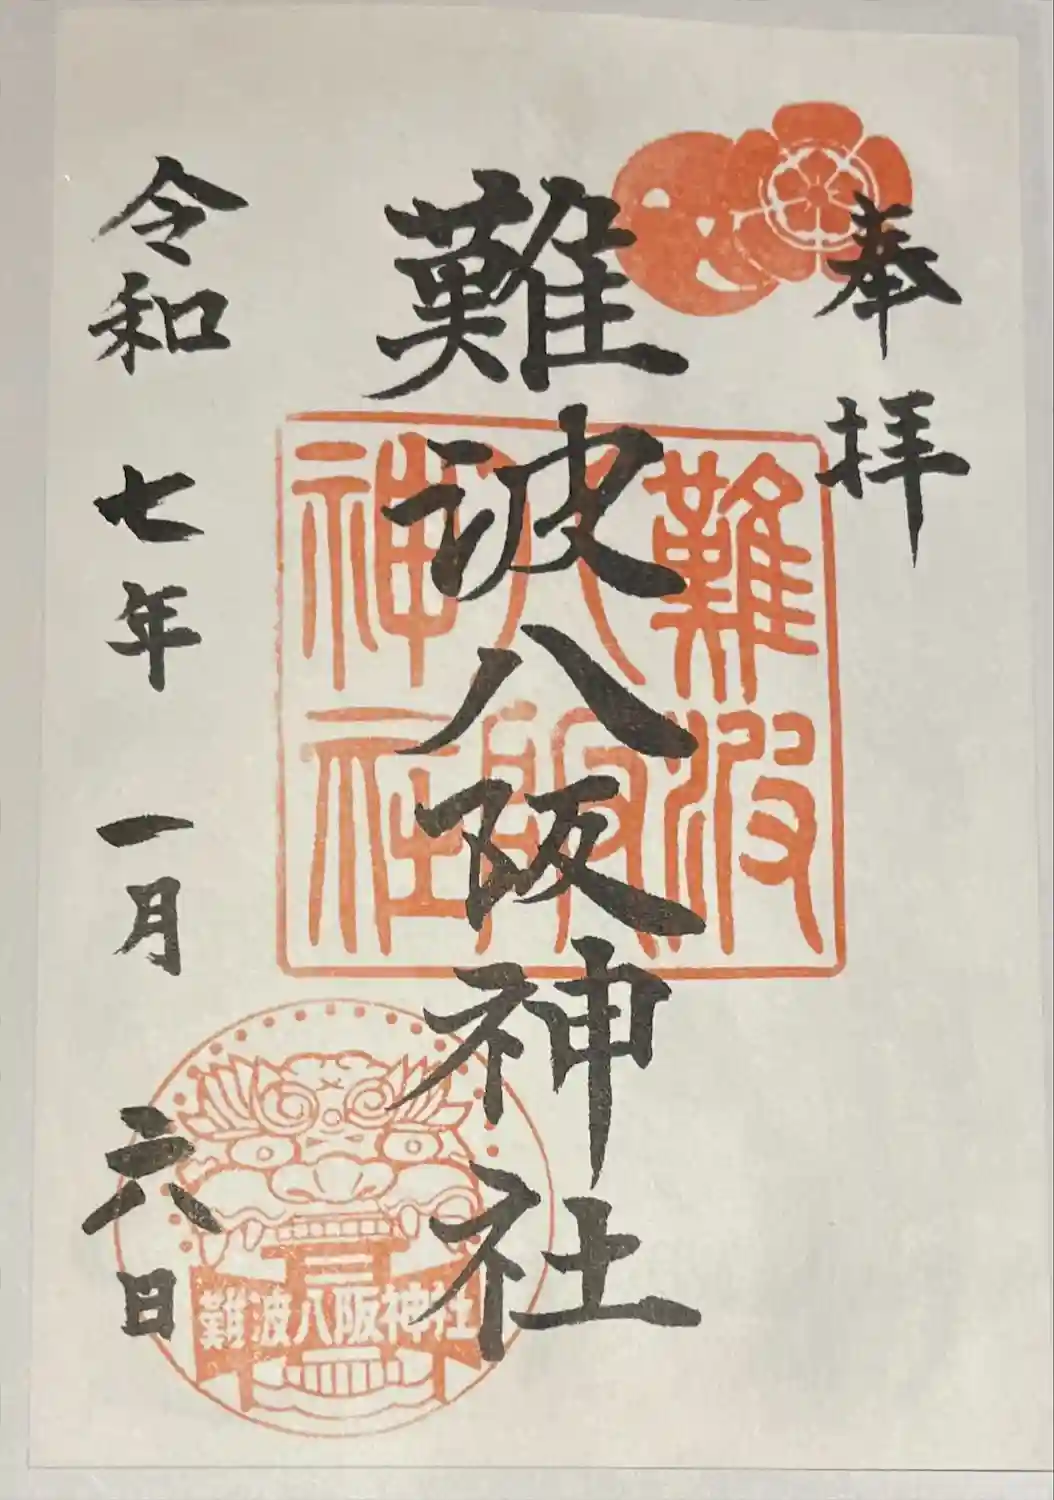 奉拝
難波八阪神社
難波八阪神社
令和 七年 一月 六日
難波八阪神社